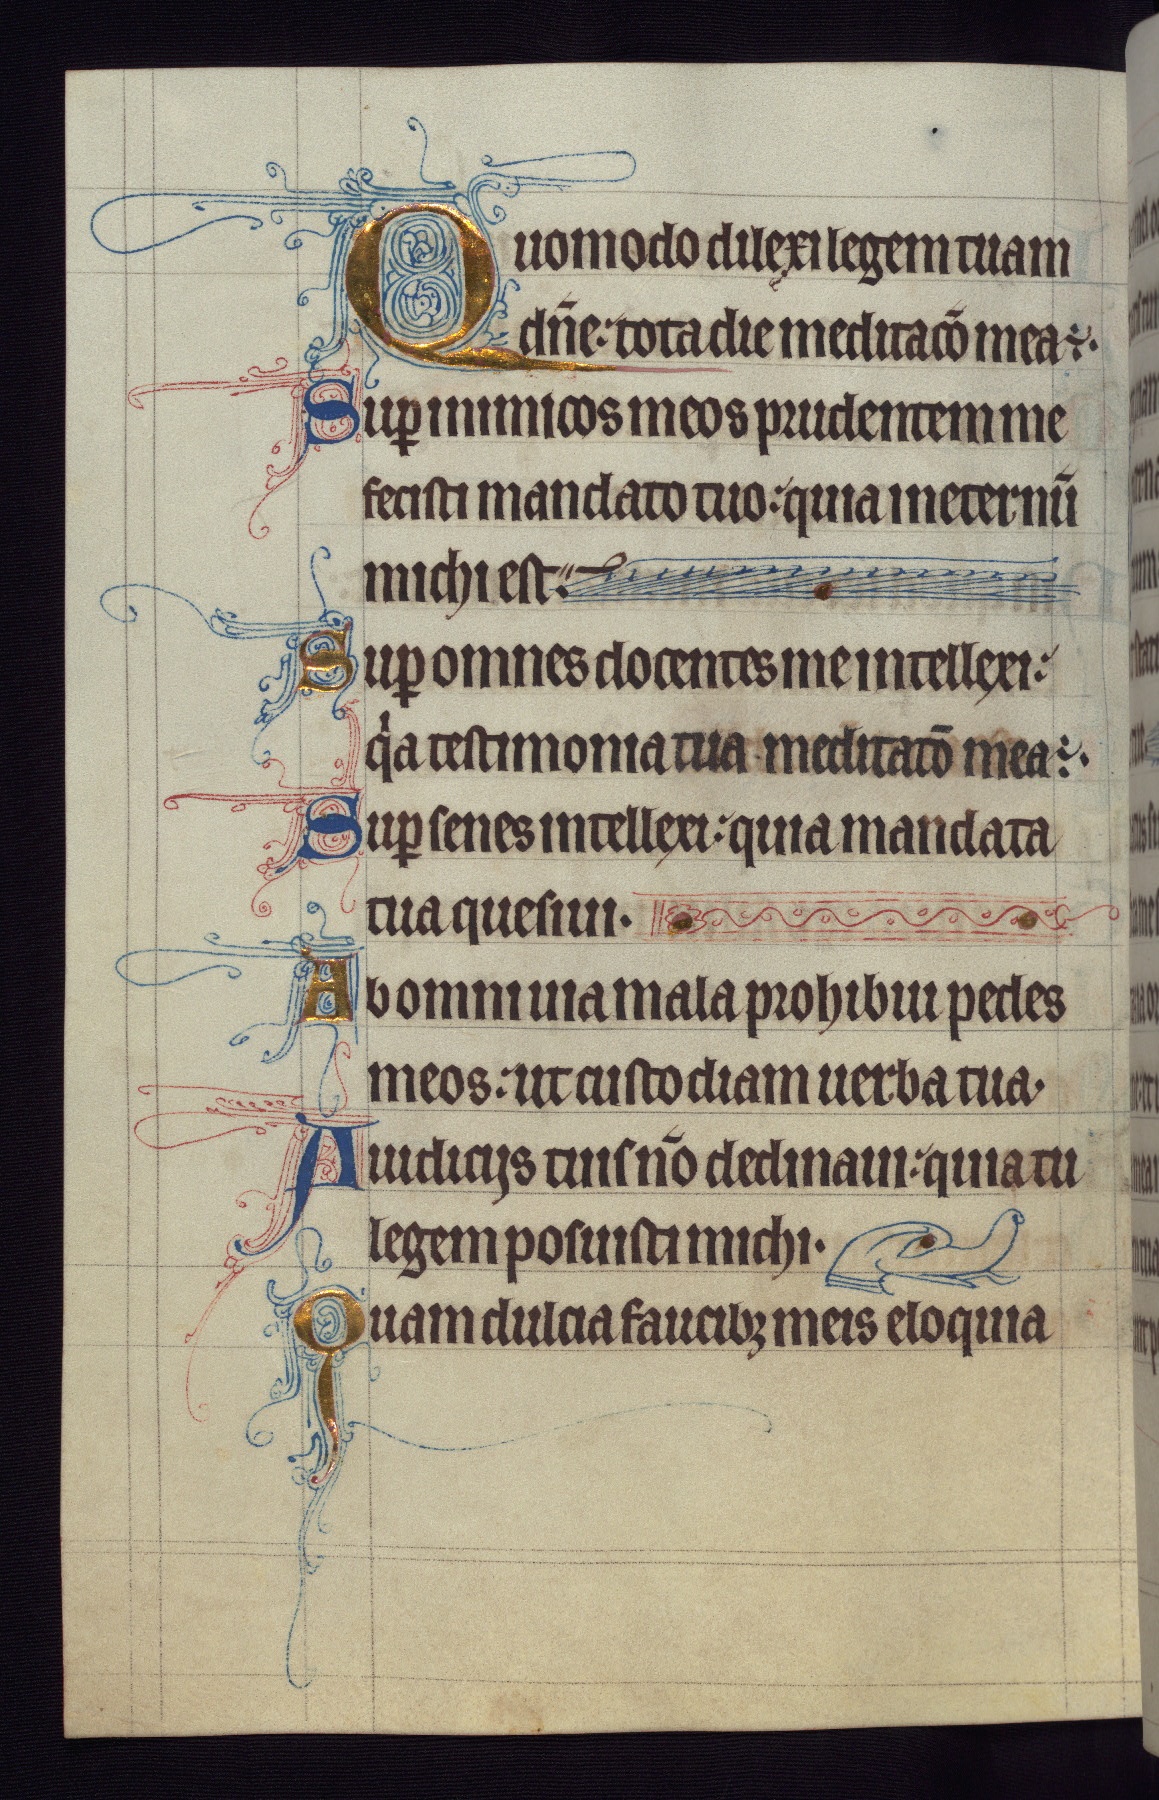 Quomodo dilexi legem tuam
dn̄e: tota die meditacō mea.
Suꝑ inimicos meos prudentem me
fecisti mandato tuo: quia in eternū
michi est.
Suꝑ omnes docentes me intellexi:
qͥa testimonia tua meditatō mea.
Suꝑ senes intellexi: quia mandata
tua quesiui.
Ab omni uia mala prohibui pedes
meos: ut custodiam uerba tua.
A iudicijs tuis nō declinaui: quia tu
legem posuisti michi.
Quam dulcia faucibꝫ meis eloquia